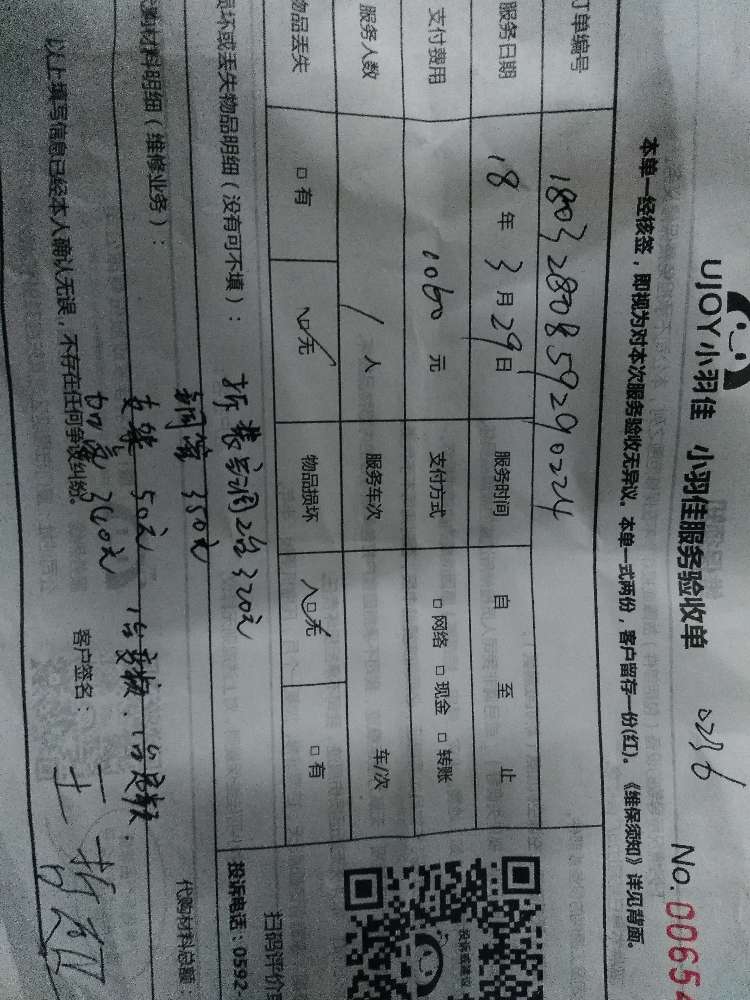 UJOY小羽佳 小羽佳服务验收单 0236 No.00654
本单一经核签，即视为对本次服务验收无异议。本单一式两份，客户留存一份(红)。《维保须知》详见背面。
订单编号 1803280859290224
服务日期 18年3月29日 服务时间 自 至 止
支付费用 1060元 支付方式 □网络 □现金 □转账
服务人数 1人 服务车次 车/次
物品丢失 □有 □无 物品损坏 □无 □有
损坏或丢失物品明细（没有可不填）： 拆装空调2台320元
铜管350元
购材料明细（维修业务）：
支架 50元
加氟 340元
代购材料总额：
以上填写信息已经本人确认无误，不存在任何争议纠纷。
客户签名：
扫码评价
投诉电话：0592
投诉或建议